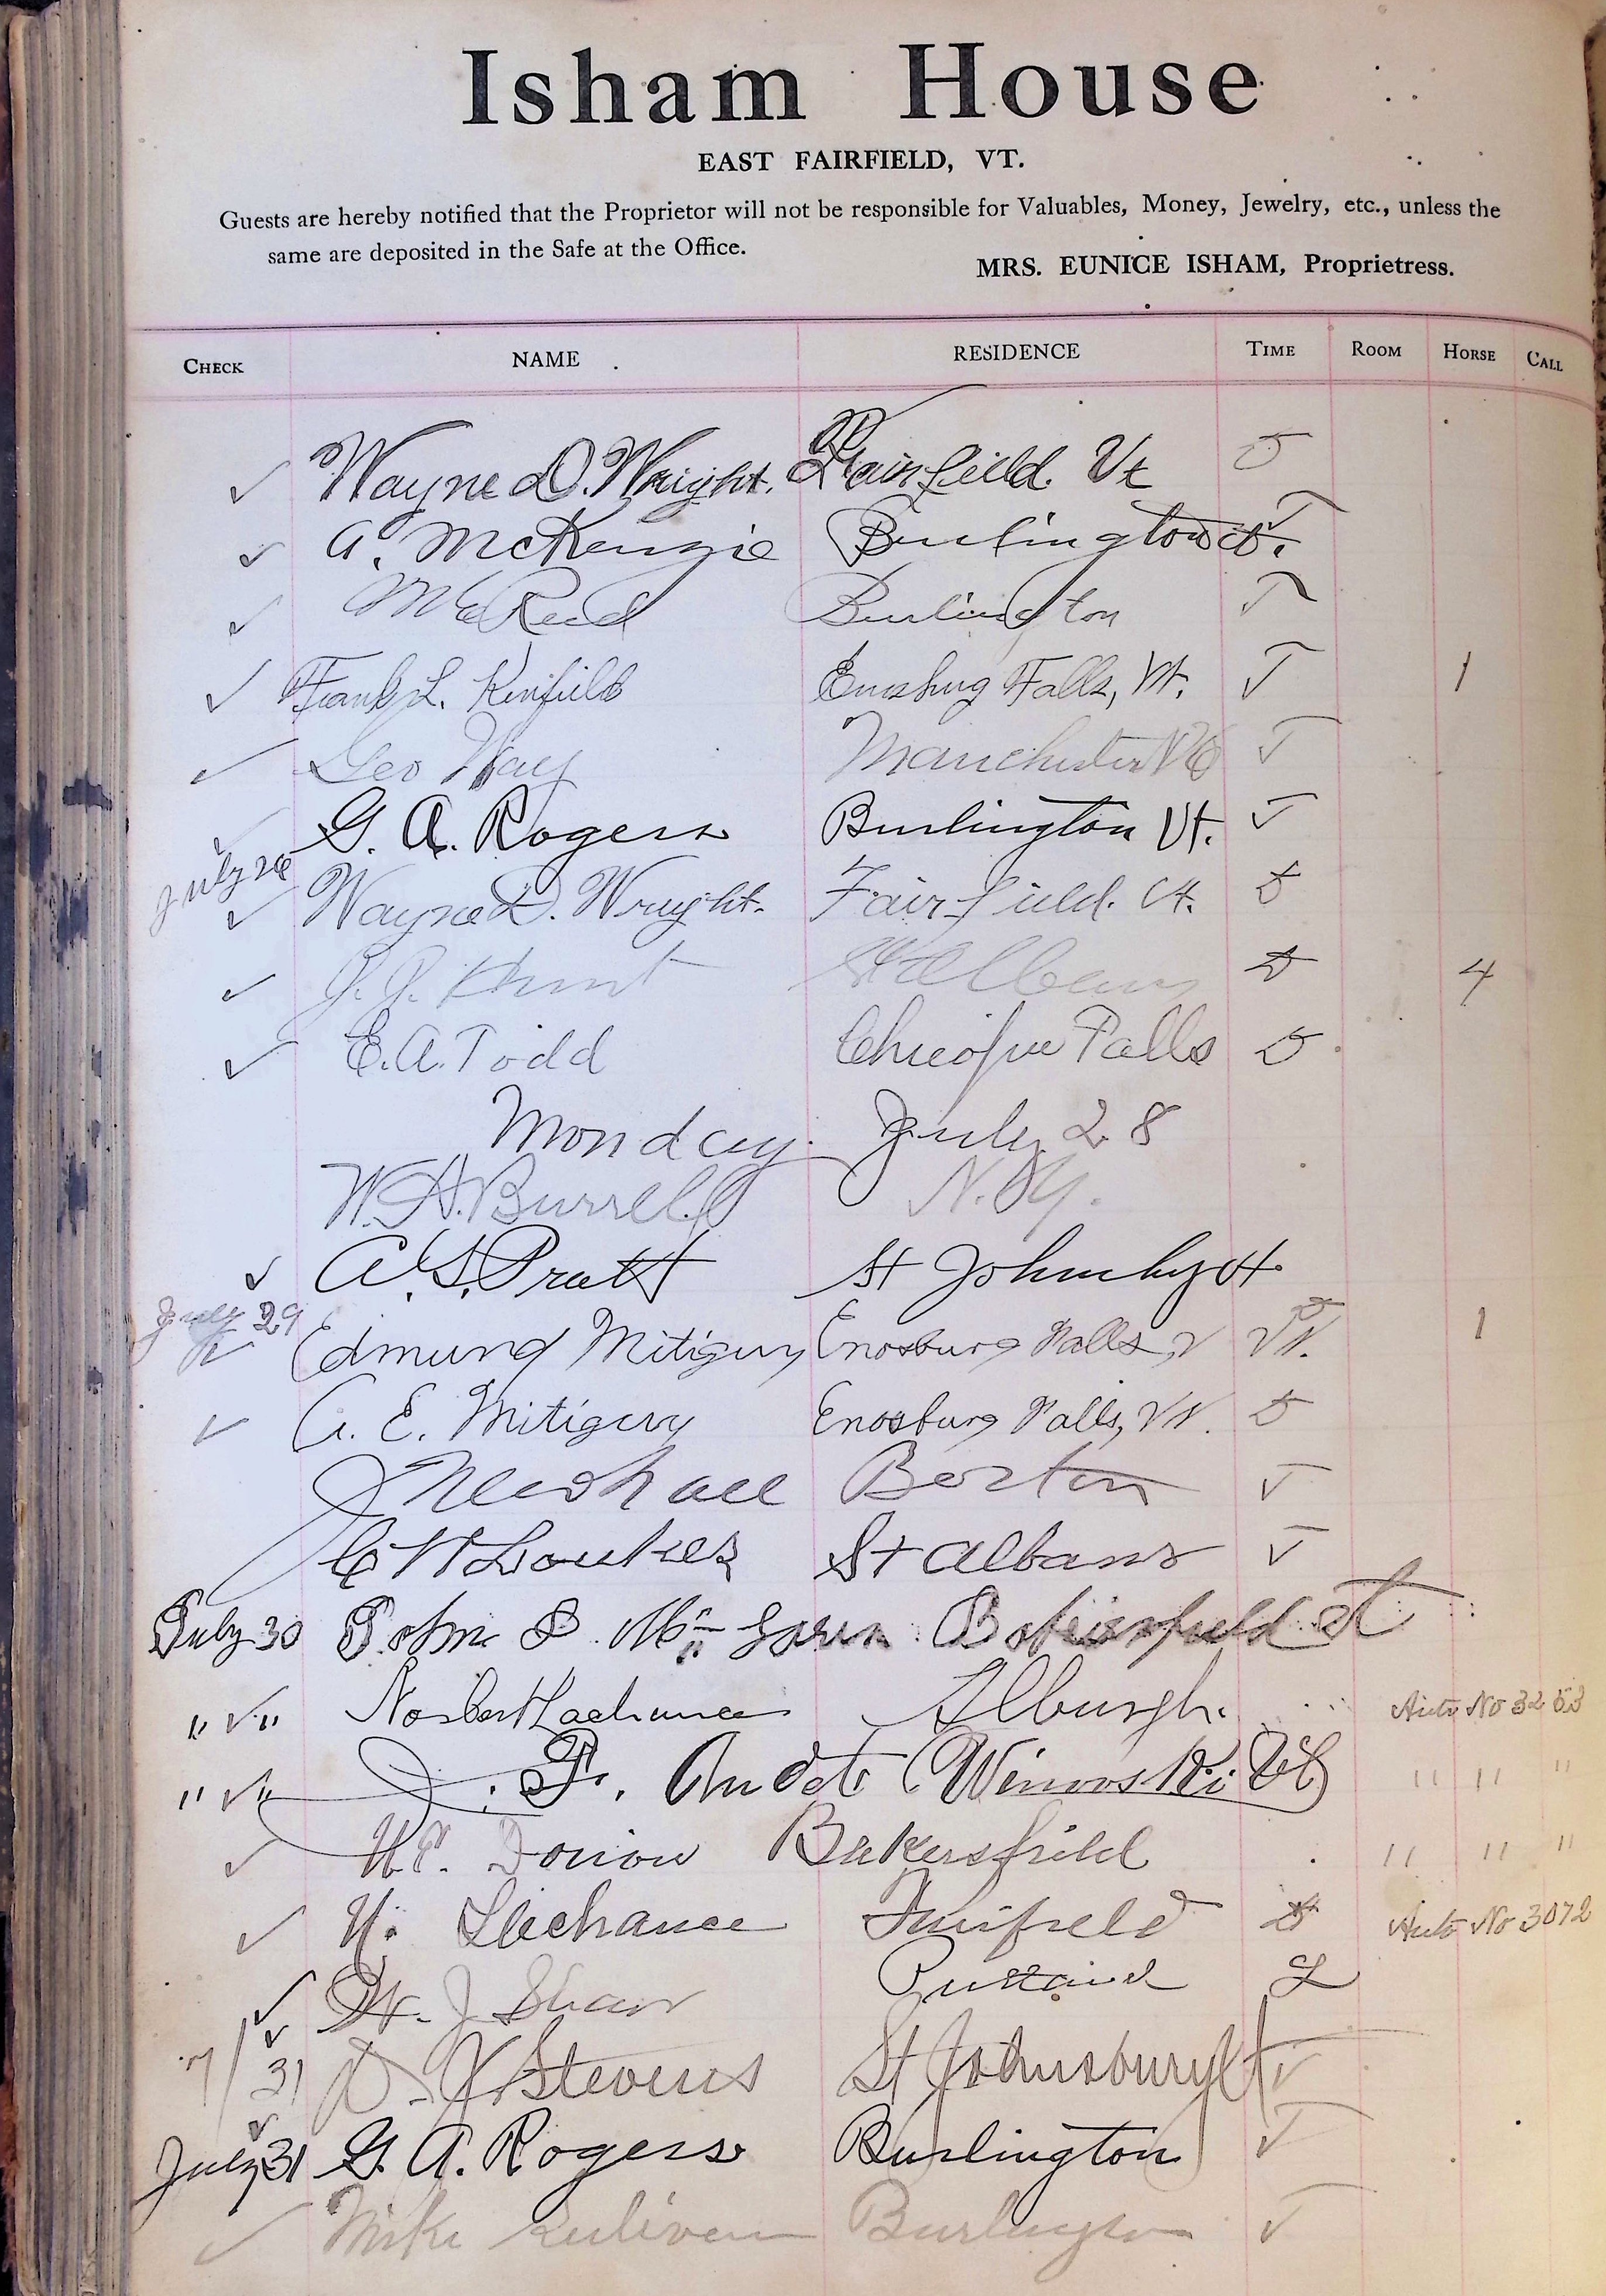 Isham House
EAST FAIRFIELD, VT.
Guests are hereby notified that the Proprietor will not be responsible for Valuables, Money, Jewelry, etc., unless the
same are deposited in the Safe at the Office.
MRS. EUNICE ISHAM, Proprietress.
CHECK NAME RESIDENCE TIME ROOM HORSE CALL
✓ Wayne D. Wright. Vt
✓ A. McKenzie Burlington
✓ Reed Burlington T
✓ Frank L. Enosburg Falls, Vt. T 1
✓ Geo Way Manchester T
✓ G. A. Rogers Burlington Vt. T
July 26
✓ Wayne D. Wright. Fairfield. Vt. D
✓ J. J. Hunt St Albans D 4
✓ E. A. Todd Chicopee Falls D
Monday. July 28
W. H. Burrell N. Y.
✓ A. S. Pratt St Johnsbury Vt
July 29
✓ Edmund Mitiguy Enosburg Falls, V Vt. D 1
✓ A. E. Mitiguy Enosburg Falls, Vt. D
J Newhall Boston T
C H St Albans T
July 30 John Bakersfield Vt
" ✓ " Norbert Lachance Alburgh. Auto No 3253
" ✓ " J. F. Audet Winooski Vt " " "
✓ Bakersfield " " "
✓ N. Lachance Fairfield D Auto No 3072
✓ J Shaw Rutland
✓
7/31 Stevens St Johnsbury Vt T
✓
July 31 G. A. Rogers Burlington T
✓ Mike Burlington T